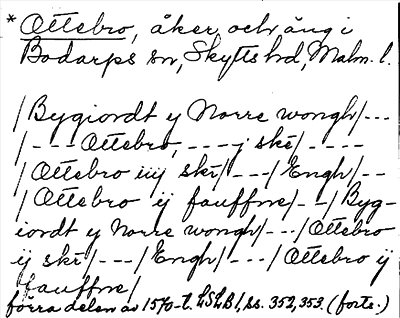 * Ottebro, åker och äng i
Bodarps sn, Skytts hd, Malm. l.
/Bygiordt y Norre wongh/---
/---Ottebro, ---j skr/----
/Ottebro iiij skr/---/Engh/--
/Ottebro ij fauffne/--/Byg-
iordt y Norre wongh/---/Ottebro
ij skr/---/Engh/---/Ottebro ij
fauffne/
förra delen av 1570-t. LSLB 1, ss. 352, 353. (forts.)